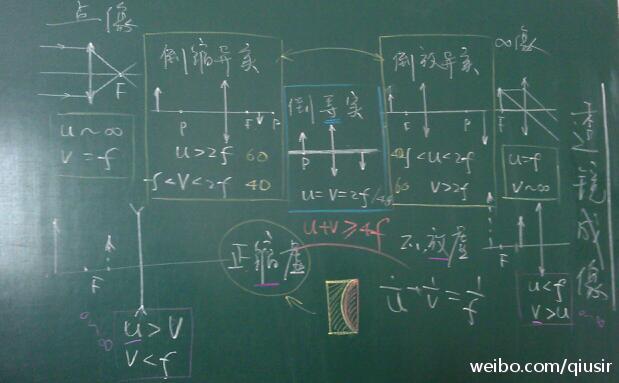 点像
F
u~∞
v=f
倒缩异实
P
F
P
u>2f 60
f<v<2f 40
倒等实
P
u=v=2f
u+v≥4f
倒放异实
F
P
f<u<2f
60 v>2f
∞像
F
u=f
v~∞
透镜成像
F
正缩虚
u>v
v<f
正放虚
1/u+1/v=1/f
F
u<f
v>u
weibo.com/qiusir